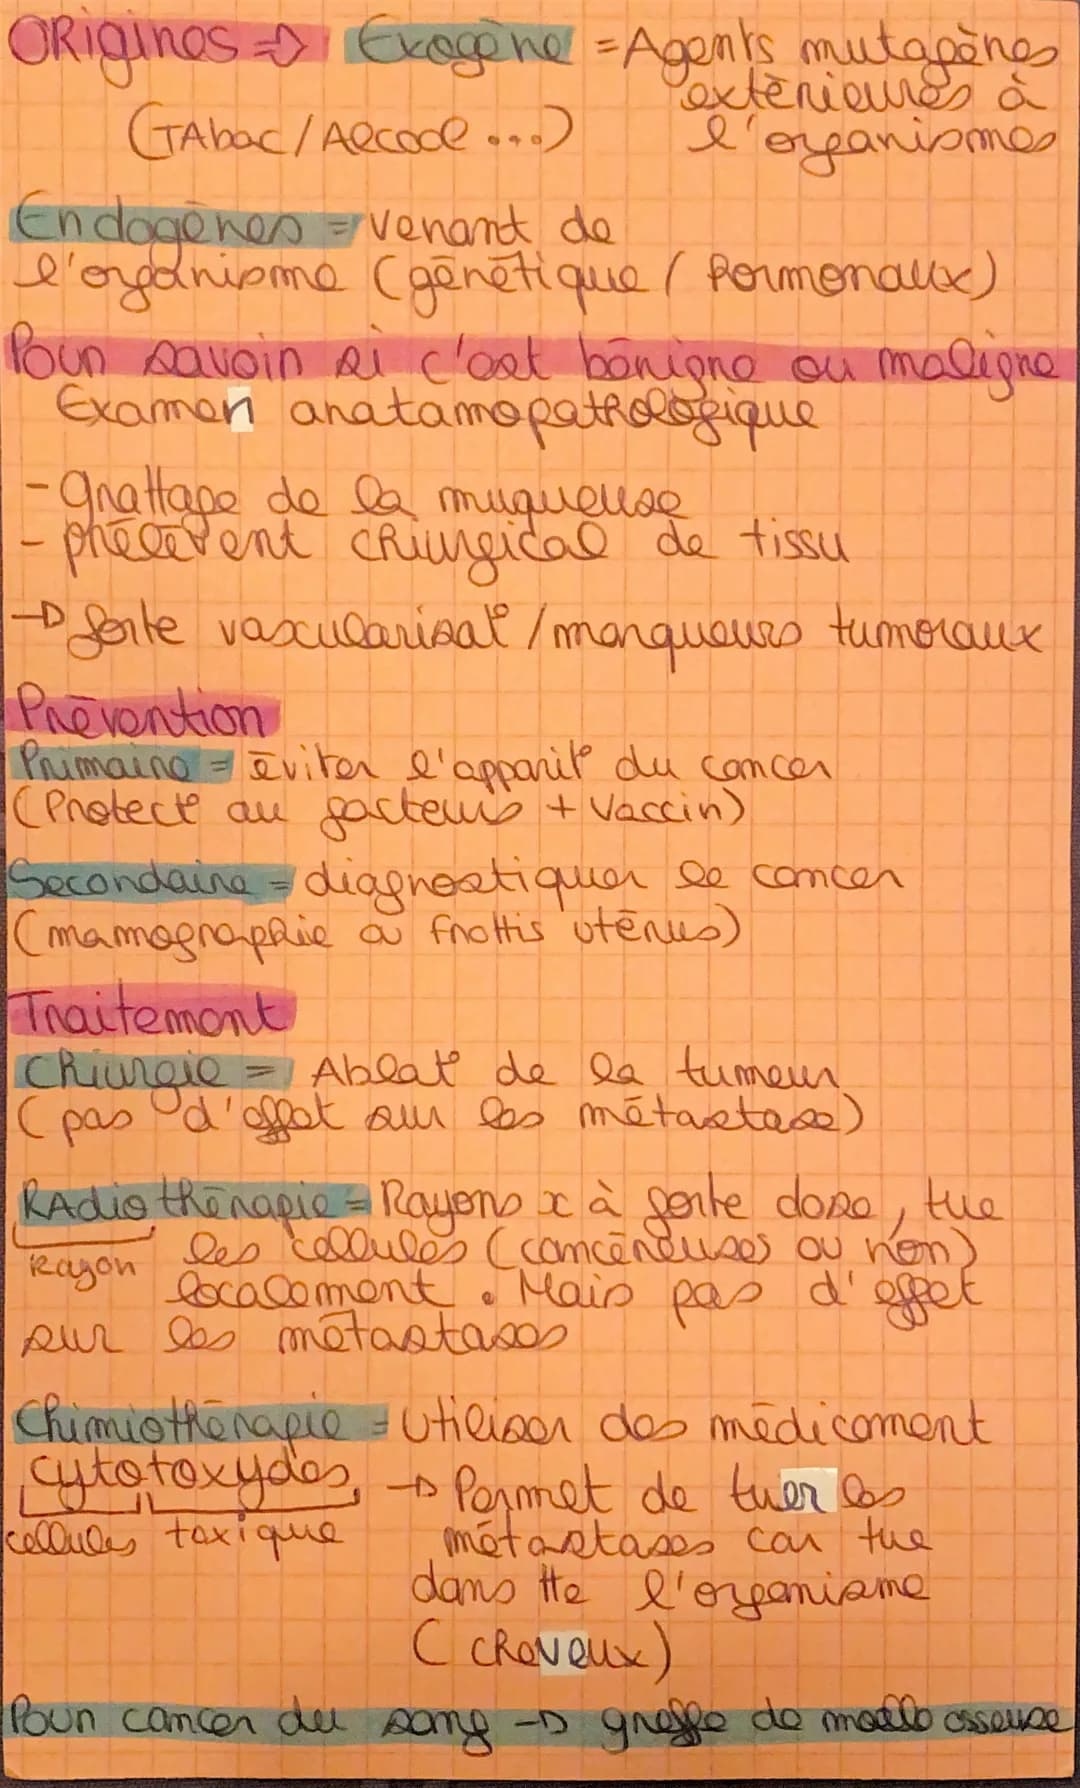 Origines => Exogène = Agents mutagènes
extérieures à
(TAbac / Alcool ...) l'organismes
Endogènes = venant de
l'organisme (génétique / hormonaux)
Pour savoir si c'est bénigne ou maligne
Examen anatamopathologique
- grattage de la muqueuse
- prélèvent chiurgical de tissu
→ forte vascularisat° / marqueurs tumoraux
Prévention
Primaire = éviter l'apparit° du cancer
(Protect° au facteurs + Vaccin)
Secondaire = diagnostiquer le cancer
(mamographie ou frottis utérus)
Traitement
Chiurgie = Ablat° de la tumeur
(pas d'effet sur les métastase)
RAdiothérapie = Rayons x à forte dose, tue
Rayon les cellules (cancéreuses ou non)
localement. Mais pas d'effet
sur les métastases
Chimiothérapie = Utiliser des médicament
cytotoxydes → Permet de tuer les
cellules toxique métastases car tue
dans tte l'organisme
(cheveux)
Pour cancer du sang → greffe de moelle osseuse